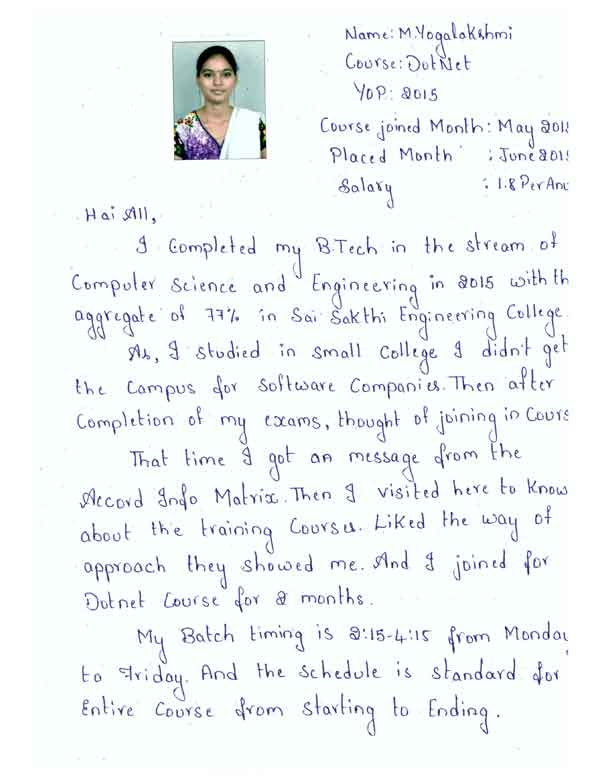 Name: M.Yogalakshmi
Course: DotNet
YOP: 2015
Course joined Month: May 201
Placed Month : June 201
Salary : 1.8 Per An
Hai All,
I Completed my B.Tech in the stream of
Computer Science and Engineering in 2015 with th
aggregate of 77% in Sai Sakthi Engineering College.
As, I studied in small College I didn't get
the Campus for Software Companies. Then after
Completion of my exams, thought of joining in Cours
That time I got an message from the
Accord Info Matrix. Then I visited here to Know
about the training Courses. Liked the way of
approach they showed me. And I joined for
Dotnet Course for 2 months.
My Batch timing is 2:15-4:15 from Monday
to Friday. And the schedule is standard for
Entire Course from starting to Ending.